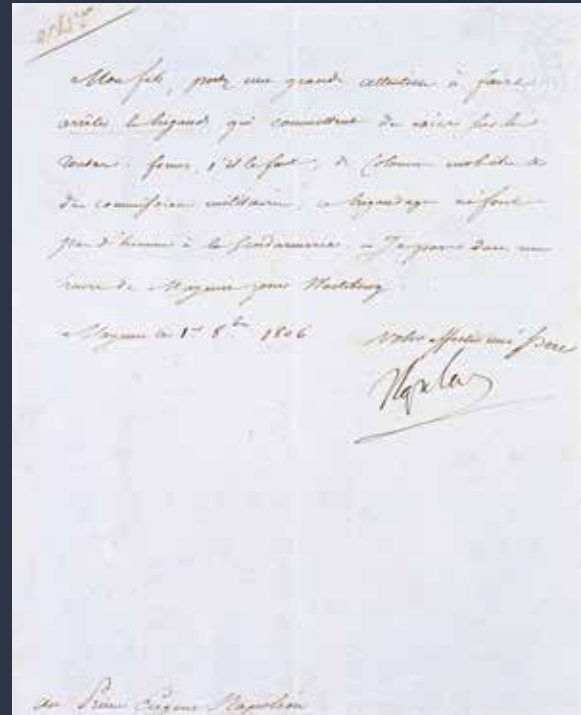 Mon fils, portez une grande attention à faire
arrêter les brigands qui commettent des crimes sur les
routes. formez, s'il le faut, des Colonnes mobiles &
des commissions militaires. ce brigandage ne fait
pas d'honneur à la Gendarmerie. Je pars dans une
heure de Mayence pour
Mayence le 1er 8bre 1806
Votre affectionné Père
Napoleon
au Prince Eugène Napoléon